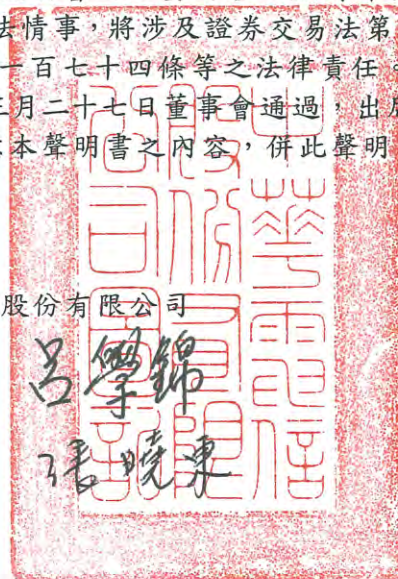 法情事，將涉及證券交易法第
一百七十四條等之法律責任。
三月二十七日董事會通過，出席
本聲明書之內容，併此聲明
股份有限公司
呂學錦
張曉東
中華電信
股份有限
公司圖記